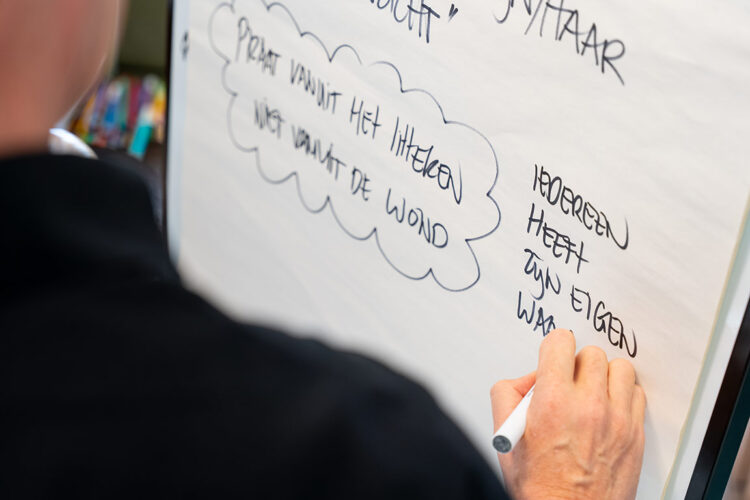 ZIJN/HAAR
PRAAT VANUIT HET litteken
NIET VANUIT DE WOND
IEDEREEN
HEEFT
ZIJN EIGEN